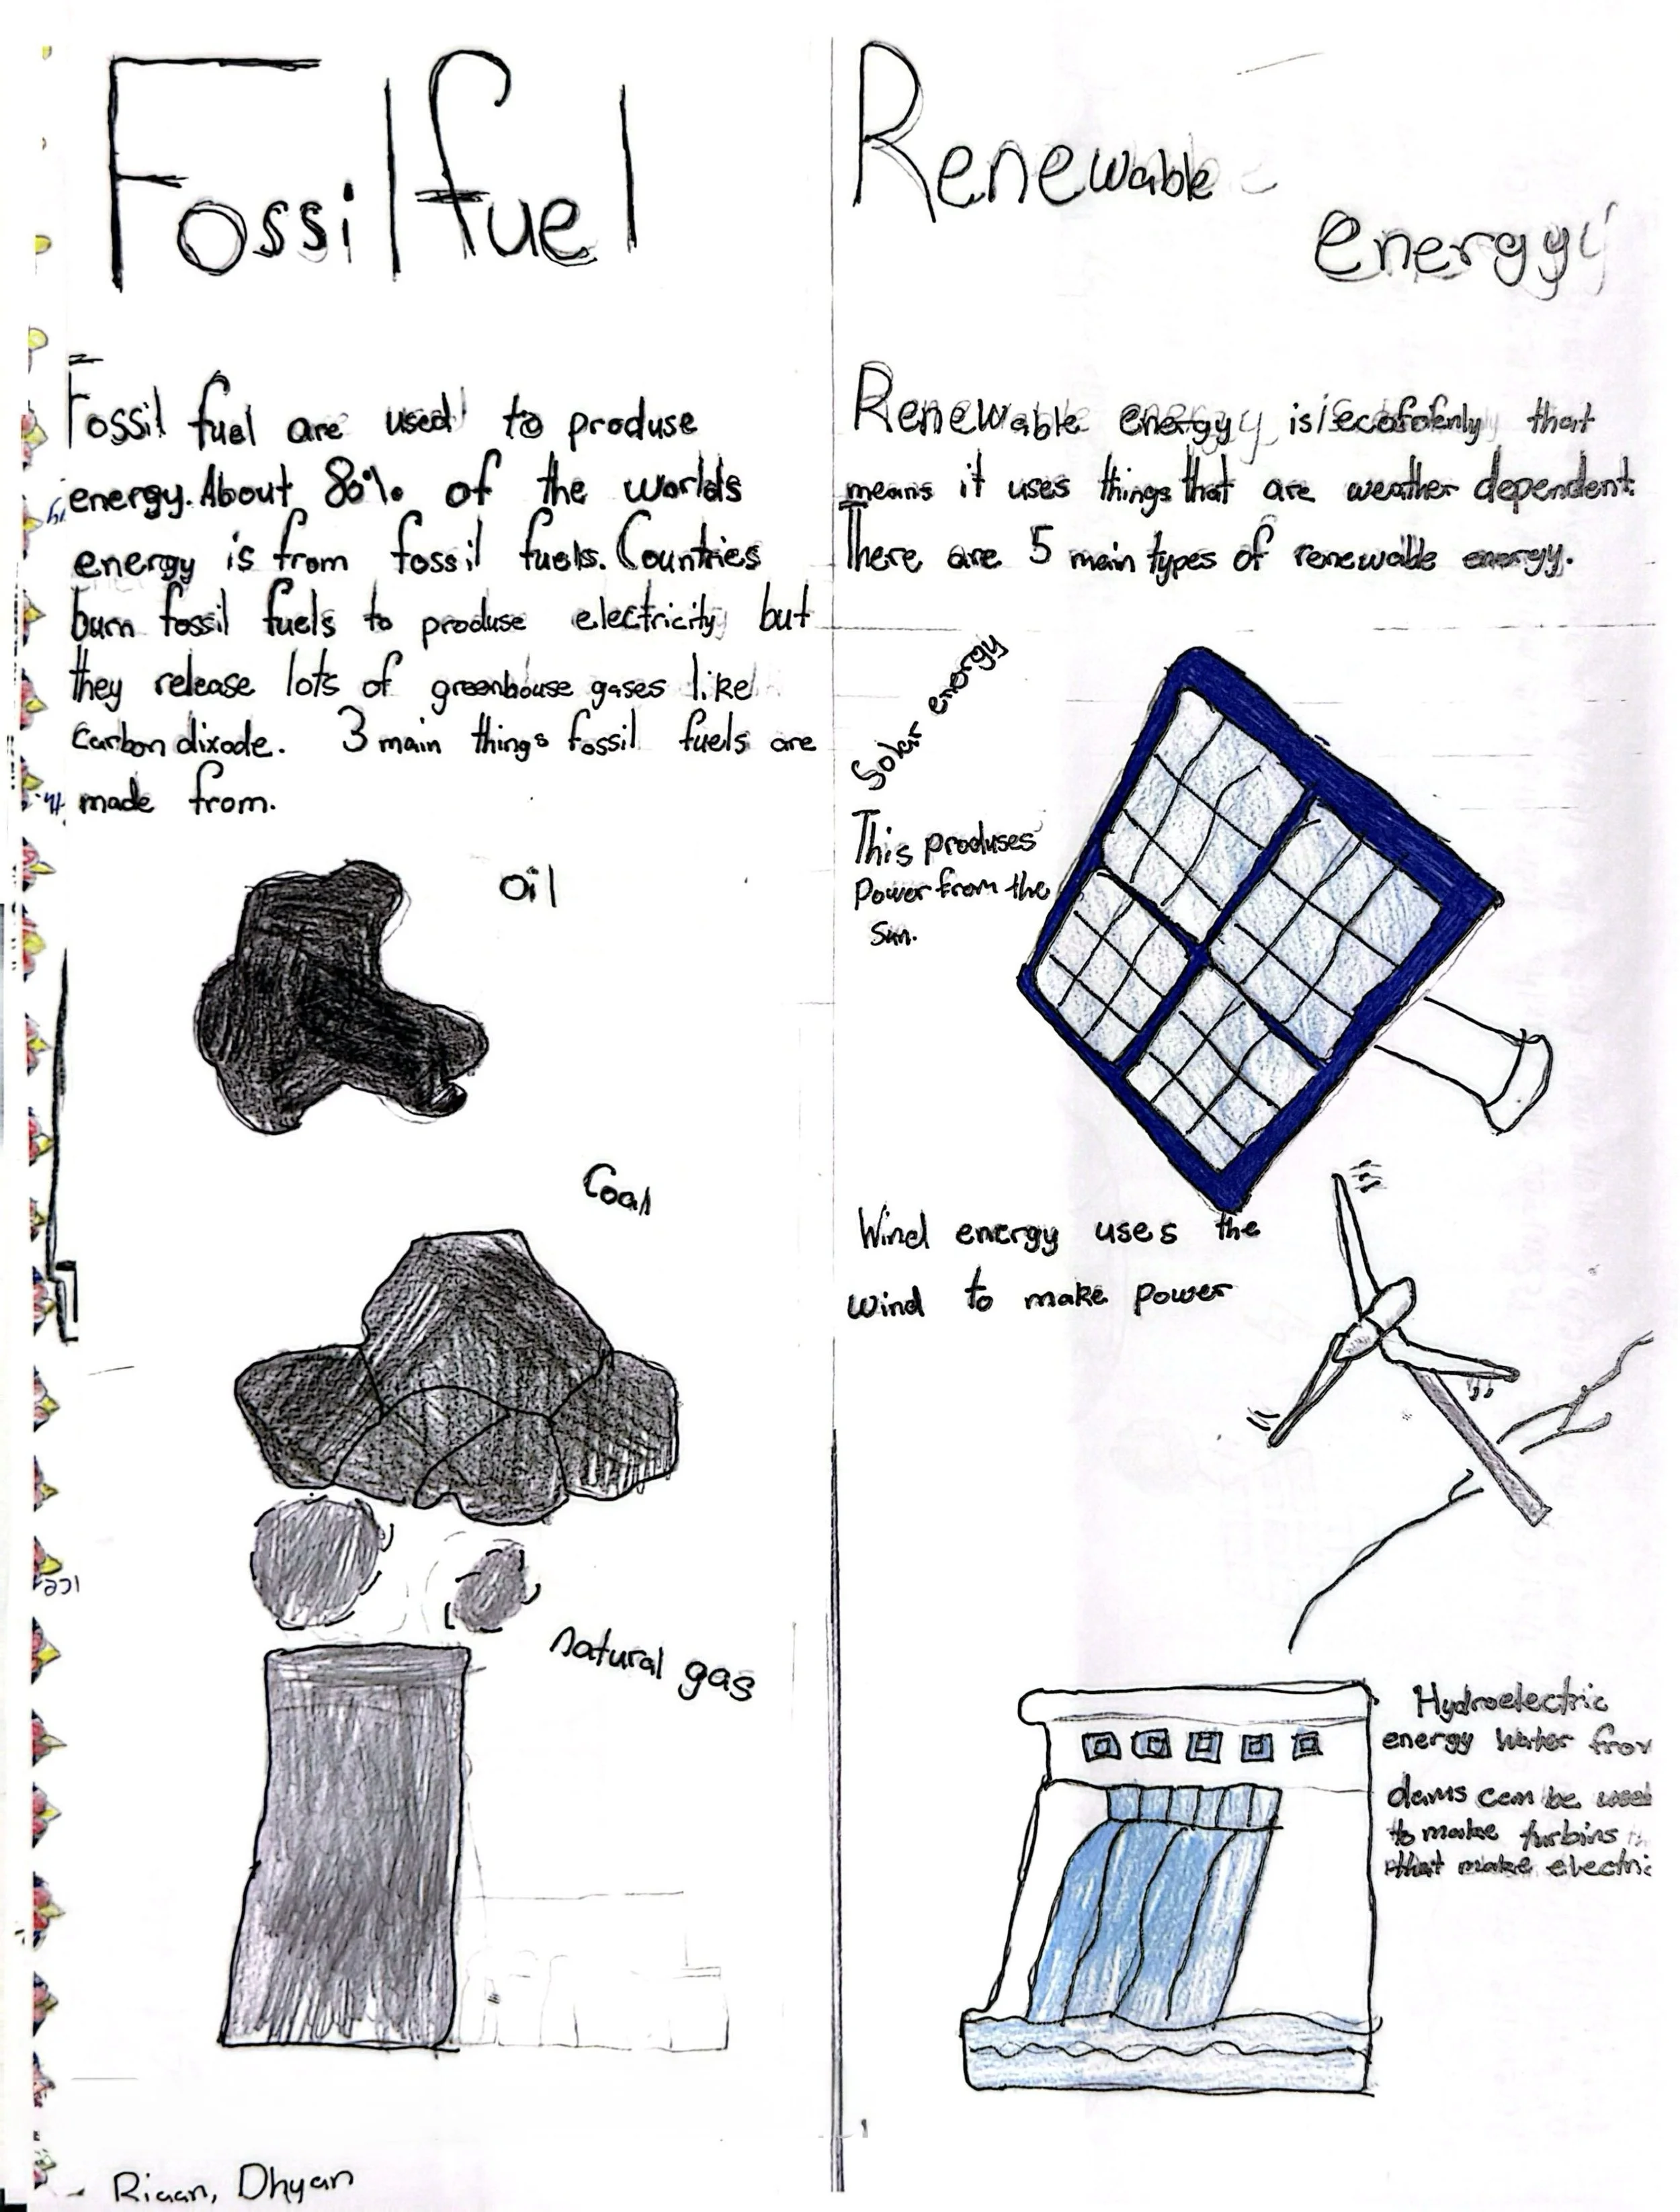 Fossil fuel
Fossil fuel are used to produse
energy. About 80% of the worlds
energy is from fossil fuels. Countries
burn fossil fuels to produse electricity but
they release lots of greenhouse gases like
carbon dixode. 3 main things fossil fuels are
made from.
oil
Coal
natural gas
Riaan, Dhyan
Renewable
energy
Renewable energy is that
means it uses things that are weather dependent.
There are 5 main types of renewable energy.
Solar energy
This produses
Power from the
Sun.
Wind energy uses the
wind to make power
Hydroelectric
energy Water
dams can be
to make turbins
that make